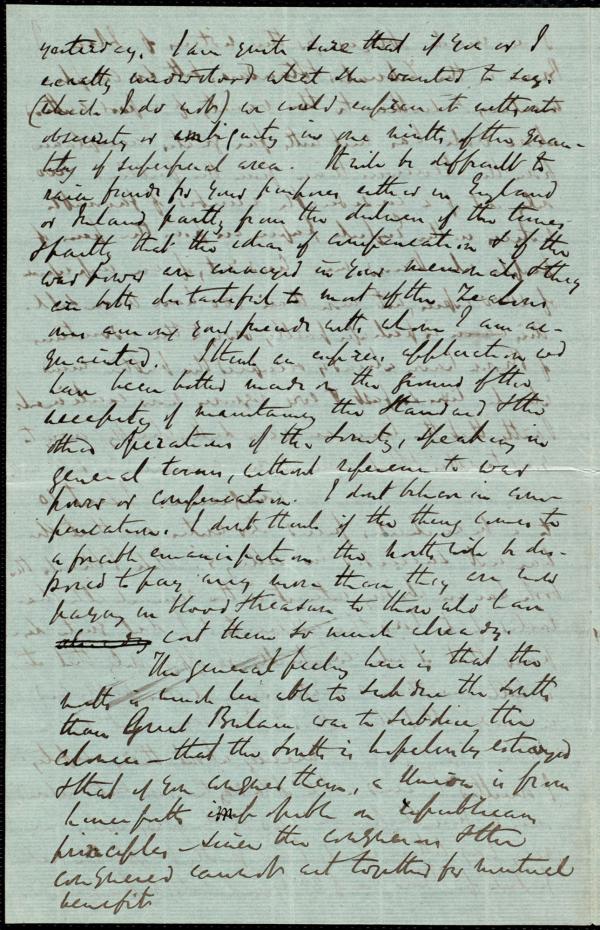 yesterday. I am quite sure that if you or I
exactly understood what she wanted to say.
(which I do not) we could express it without
obscurity or ambiguity in one ninth of the quan-
tity of superficial area. It will be difficult to
raise funds for your purposes either in England
or Ireland partly from the dulness of the times
& partly that the ideas of compensation & of the
war power are conveyed in your memorials & they
are both distasteful to most of the zealous
ones among your friends with whom I am ac-
quainted. I think an express application wd
have been better made on the ground of the
necessity of maintaining the Standard & the
other operations of the Society, speaking in
general terms, without reference to war
power or compensation. I dont believe in com-
pensation. I dont think if the thing comes to
a forcible emancipation the north will be dis-
posed to pay any more than they are now
paying in blood & treasure to those who have
already cost them so much already.
The general feeling here is that the
north is much less able to subdue the South
than Great Britain was to subdue the
Colonies - that the South is hopelessly estranged
& that if you conquer them, a Union is from
henceforth impossible on republican
principles - since the conquerors & the
conquered cannot act together for mutual
benefit